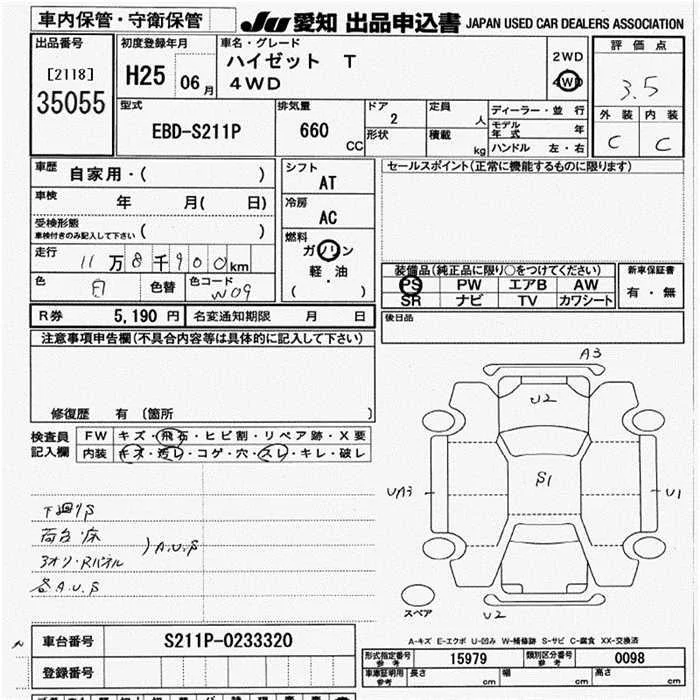 車内保管・守衛保管 JU 愛知 出品申込書 JAPAN USED CAR DEALERS ASSOCIATION
出品番号 [2118] 35055
初度登録年月 H25 06月
車名・グレード ハイゼット T
4WD
2WD
4WD
評価点 3.5
外装 内装
C C
型式 EBD-S211P
排気量 660 CC
ドア 2
形状
定員 人
積載 kg
ディーラー・並行
モデル年式 年
ハンドル 左・右
車歴 自家用・( )
車検 年 月( 日)
受検形態 車検付きのみ記入して下さい ( )
走行 11万8千900km
色 白 色替 色コード W09
シフト AT
冷房 AC
燃料 ガソリン
軽・油
( ・ )
セールスポイント(正常に機能するものに限ります)
装備品(純正品に限り○をつけてください)
PS PW エアB AW
SR ナビ TV カワシート
新車保証書
有・無
R券 5,190円 名変通知期限 月 日
後日品
注意事項申告欄(不具合内容等は具体的に記入して下さい)
修復歴 有 (箇所 )
検査員記入欄
FW キズ・飛石・ヒビ割・リペア跡・X要
内装 キズ・汚レ・コゲ・穴・スレ・キレ・破レ
下廻りS
荷台・床
アオリ・Rパネル
)A.U.S
各A.U.S
A3
U2
S1
UA3
U1
U2
スペア
A-キズ E-エクボ U-凹み W-補修跡 S-サビ C-腐食 XX-交換済
車台番号 S211P-0233320
登録番号
形式指定番号 参考 15979 類別区分番号 参考 0098
車庫証明用 参考 長さ cm 幅 cm 高さ cm